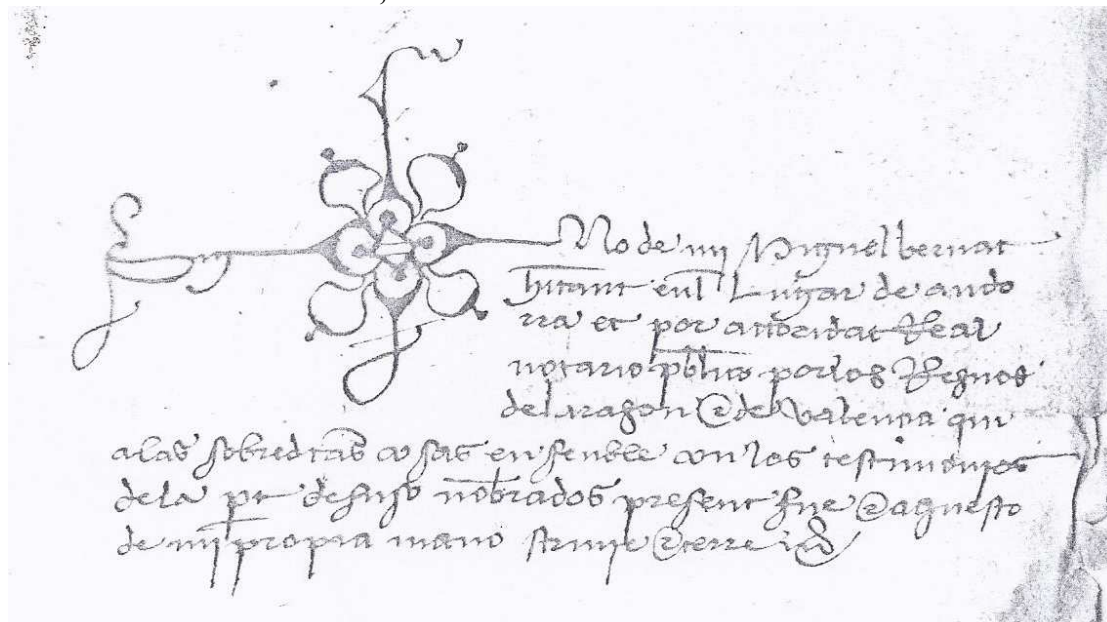 Sig No de mi Miguel bernat
hitant enl Lugar de ando
rra et por actoridat Real
notario pblico por los Regnos
de aragon e de valencia qui
a las sobreditas cosas ensenble con los testimonios
de la pt desuso nobrados present fue e aquesto
de mi propia mano scriuie e cerre